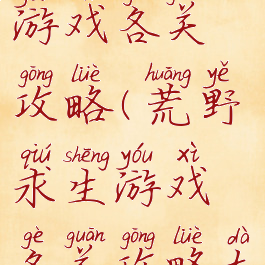 游戏各关
gōng lüè huāng yě
攻略(荒野
qiú shēng yóu xì
求生游戏
gè guān gōng lüè dà